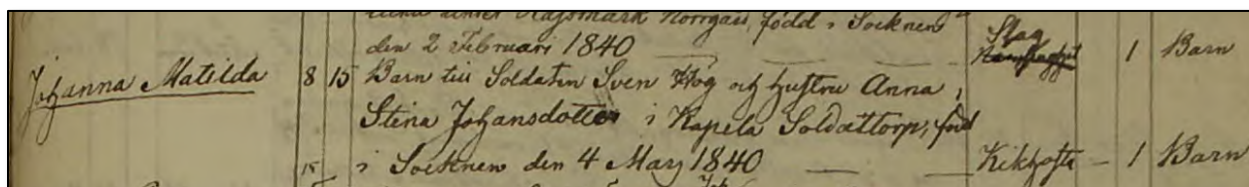 under Hagsmark Norrgård, född i Socknen
den 2 Februari 1840 Slag 1 Barn
Johanna Matilda 8 15 Barn till Soldaten Sven Hög och hustru Anna
Stina Johansdotter i Kapela Soldattorp, född
15 i Socknen den 4 Mars 1840 Kikhosta 1 Barn